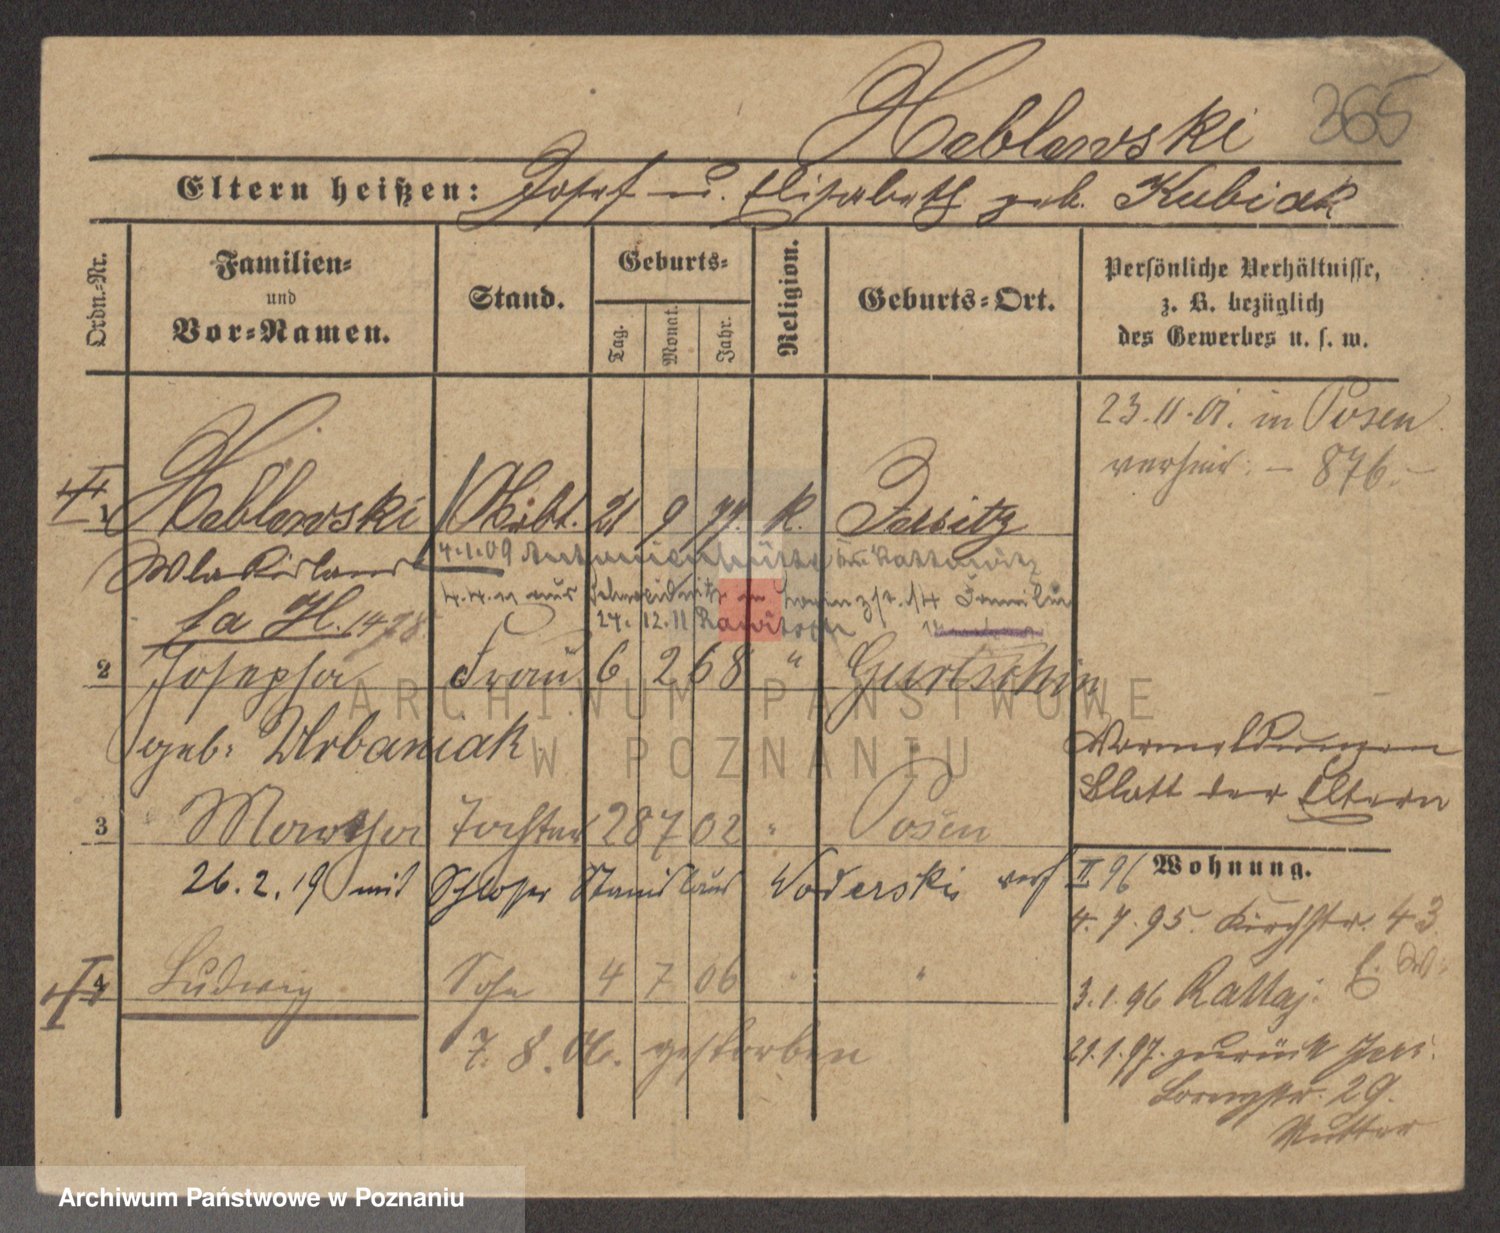 Heblewski 365
Eltern heißen: Josef u. Elisabeth geb. Kubiak
Ordn.-Nr.
Familien-
und
Vor-Namen.
Stand.
Geburts-
Tag. Monat. Jahr.
Religion.
Geburts-Ort.
Persönliche Verhältnisse,
z. B. bezüglich
des Gewerbes u. s. w.
23.11.01. in Posen
verheir. – 876. –
1 Heblewski Arbt. 21 9 77. k. Jersitz
4.1.09 Antonienhütte Kattowitz
4.4.11 aus Schweidnitz
fa H. 1478
24. 12. 11 Rawitsch
2 Josepha Frau 6 2 68 " Gurtschin
geb: Urbaniak
Vormeldungen
Blatt der Eltern
3 Martha Tochter 28 7 02 " Posen
26. 2. 19 mit Schlosser Stanislaus Woderski verh
Wohnung.
II 96
4. 7. 95. Kirchstr. 43
4 Ludwig Sohn 4 7 06 " "
3. 1. 96 Rattaj.
7. 8. 06. gestorben
21. 1. 97. zurück Jers.
29.
Mutter
ARCHIWUM PAŃSTWOWE
W POZNANIU
Archiwum Państwowe w Poznaniu